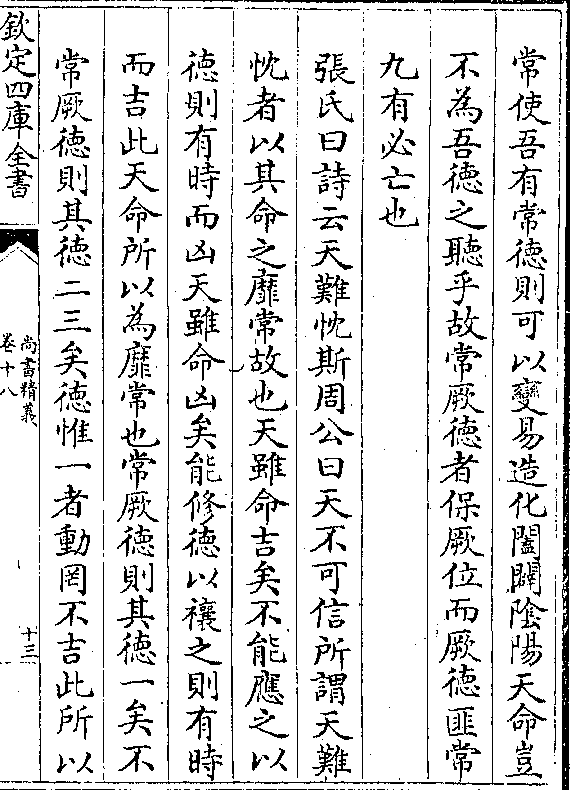 常使吾有常德則可以變易造化闔闢陰陽天命豈
不為吾德之聽乎故常厥德者保厥位而厥德匪常
九有必亡也
張氏曰詩云天難忱斯周公曰天不可信所謂天難
忱者以其命之靡常故也天雖命吉矣不能應之以
德則有時而凶天雖命凶矣能修德以禳之則有時
而吉此天命所以為靡常也常厥德則其德一矣不
常厥德則其德二三矣德惟一者動罔不吉此所以
欽定四庫全書
尚書精義
卷十八
十三